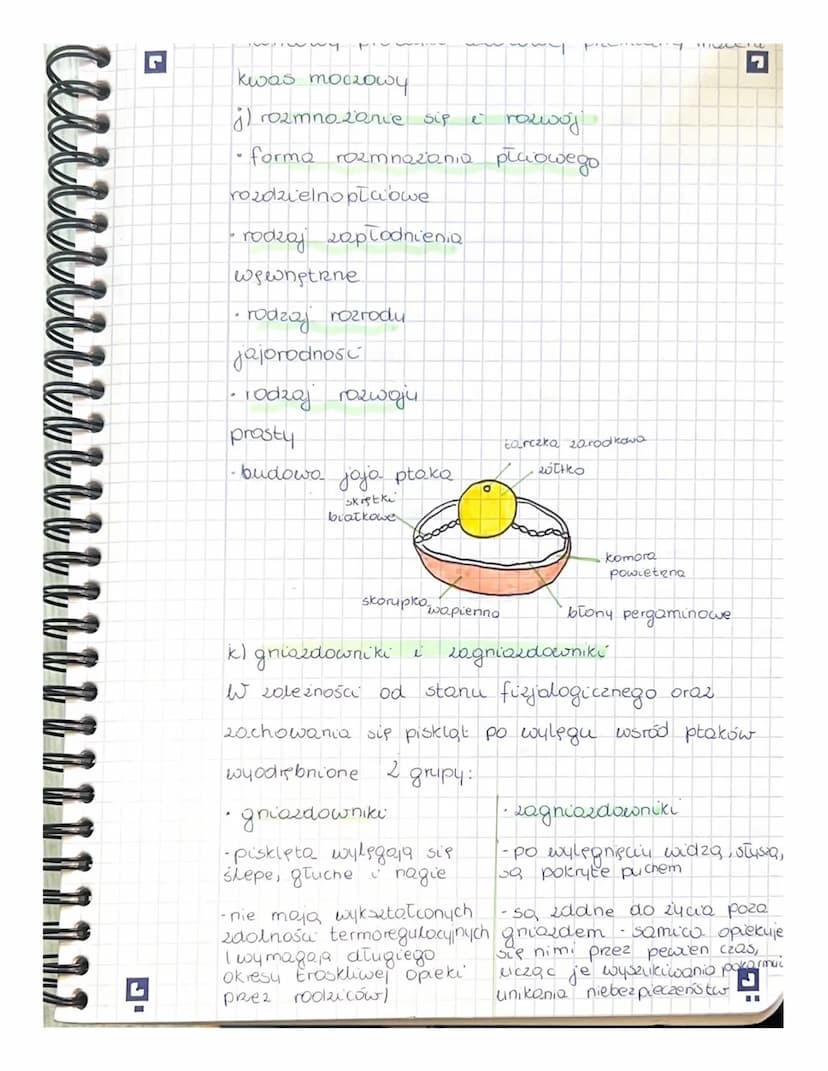 kwas moczowy
j) rozmnażanie się i rozwój
• forma rozmnażania płciowego
rozdzielnopłciowe
• rodzaj zapłodnienia
wewnętrzne
• rodzaj rozrodu
jajorodność
• rodzaj rozwoju
prosty
• budowa jaja ptaka
tarczka zarodkowa
żółtko
skrętki
białkowe
komora
powietrzna
skorupka wapienna
błony pergaminowe
k) gniazdowniki i zagniazdowniki
W zależności od stanu fizjologicznego oraz
zachowania się piskląt po wylęgu wśród ptaków
wyodrębnione 2 grupy:
• gniazdowniki
- pisklęta wylęgają się
ślepe, głuche i nagie
- nie mają wykształconych
zdolności termoregulacyjnych
(wymagają długiego
okresu troskliwej opieki
przez rodziców)
• zagniazdowniki
- po wylęgnięciu widzą, słyszą,
są pokryte puchem
- są zdolne do życia poza
gniazdem - samica opiekuje
się nimi przez pewien czas,
ucząc je wyszukiwania pokarmu i
unikania niebezpieczeństw